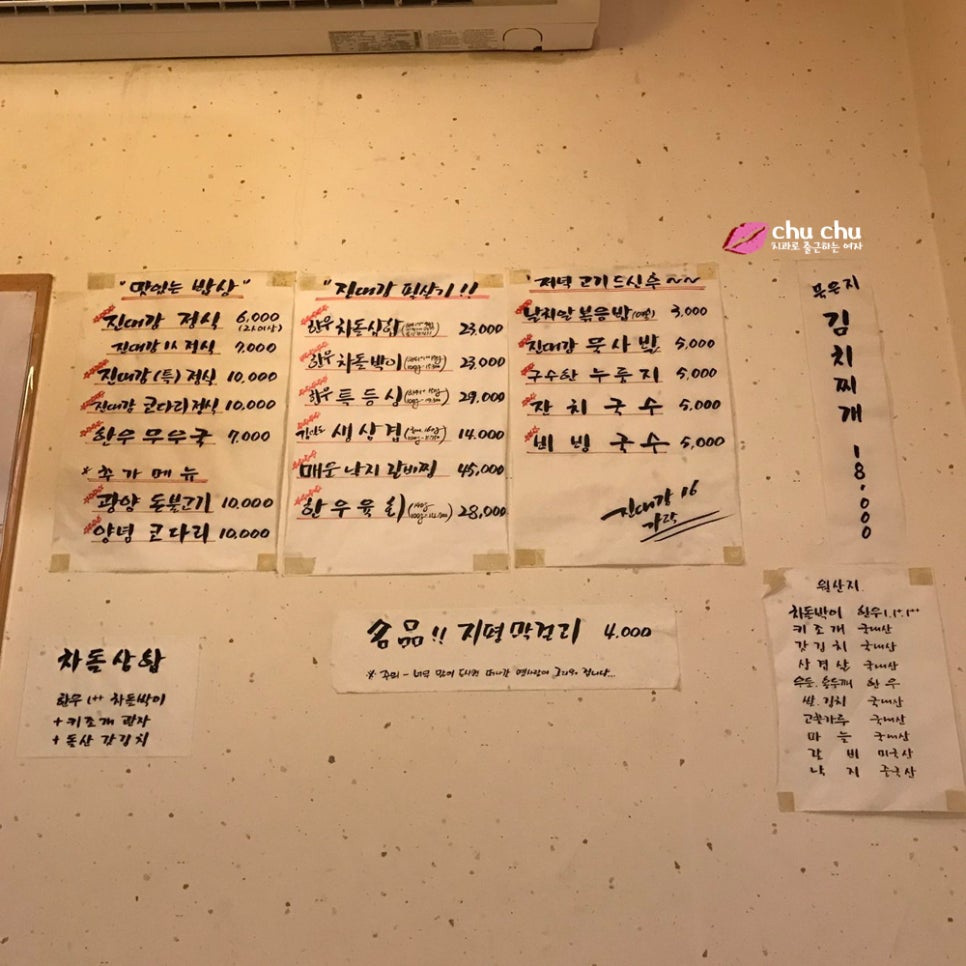 chu chu
치과로 출근하는 여자
"맛있는 밥상"
진대감 정식 6,000
(2人이상)
진대감 1人 정식 7,000
진대감(특)정식 10,000
진대감 코다리정식 10,000
한우 무우국 7,000
* 추가메뉴
광양 돈불고기 10,000
양념 코다리 10,000
"진대감 필살기!!
한우 차돌삼합 23,000
한우 차돌박이 23,000
한우 특등심 29,000
생삼겹 14,000
매운 낙지 갈비찜 45,000
한우육회 28,000
"저녁 고기드신후~~
날치알 볶음밥 3,000
진대감 묵사발 5,000
구수한 누룽지 5,000
잔치국수 5,000
비빔국수 5,000
진대감 16
가락
묵은지
김치찌개 18,000
차돌삼합
한우 1++ 차돌박이
+ 키조개 관자
+ 돌산 갓김치
명품!! 지평막걸리 4,000
원산지
차돌박이 한우
키조개 국내산
갓김치 국내산
삼겹살 국내산
한우
쌀.김치 국내산
고춧가루 국내산
마늘 국내산
갈비 미국산
낙지 중국산